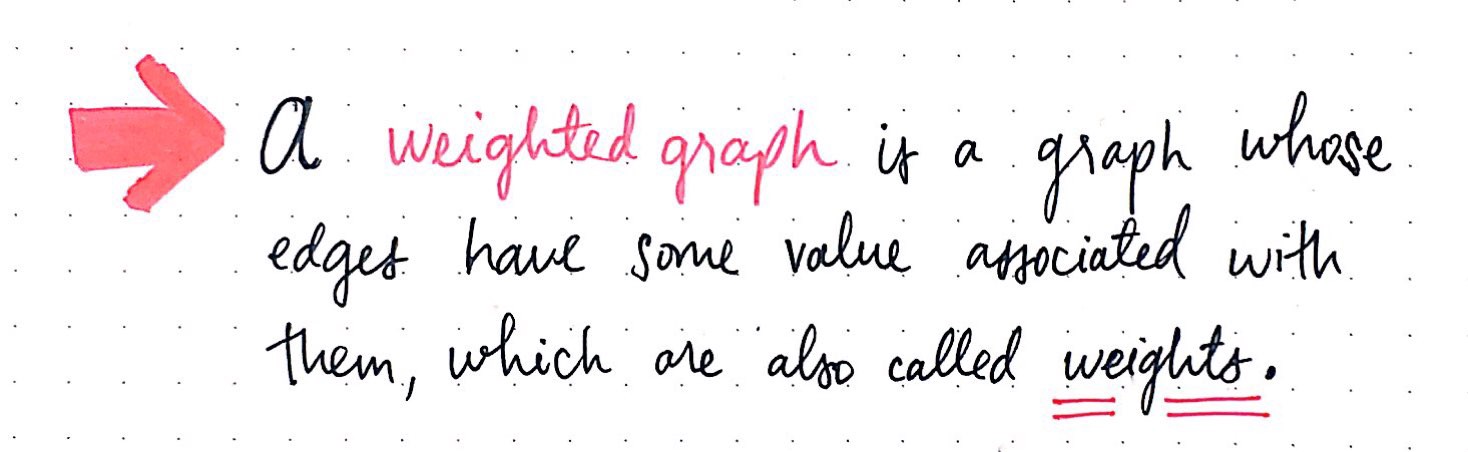 A weighted graph is a graph whose
edges have some value associated with
them, which are also called weights.